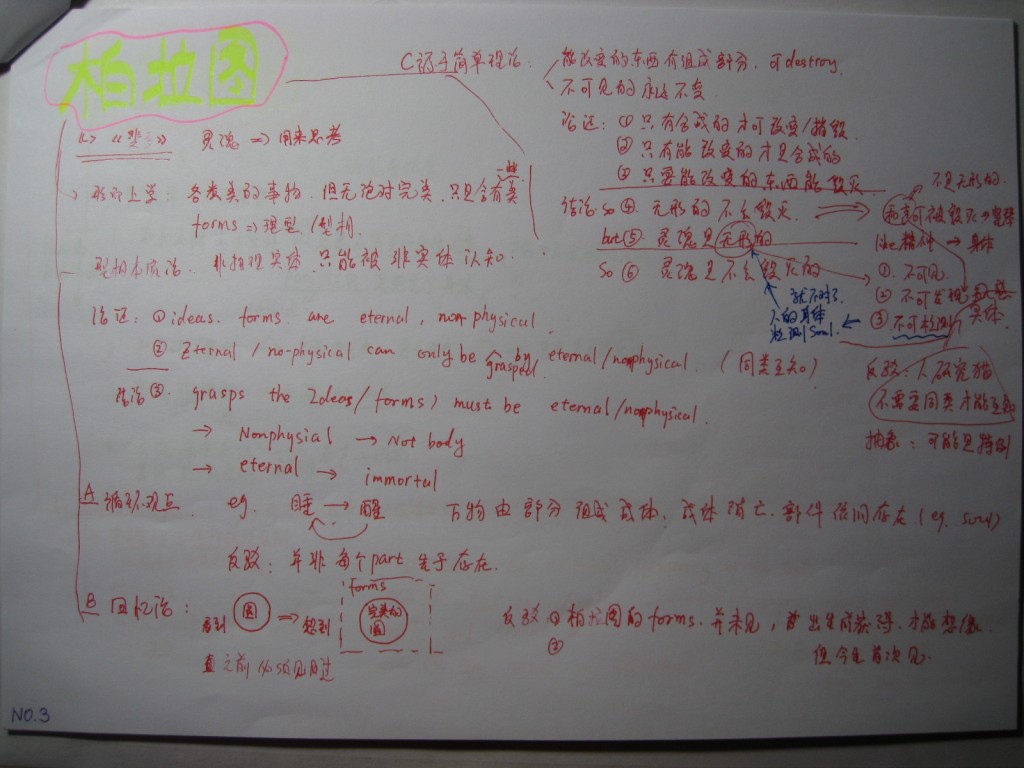 柏拉图
《斐多》 灵魂 => 用来思考
形而上学: 各类美的事物, 但无绝对完美, 只是含有一些美
forms => 理型/型相.
型相本质论: 非物理实体, 只能被非实体认知.
论述: ① ideas. forms are eternal, non-physical.
② Eternal / no-physical can only be grasped by eternal/nonphysical. (同类互知)
结论③. grasps the Ideas/forms) must be eternal/nonphysical.
→ Nonphysial → Not body
→ eternal → immortal
A 循环观点. eg. 睡 → 醒 万物由部分组成成体, 成体消亡. 部件依旧存在 (eg. soul)
反驳: 并非每个part 先于存在.
B 回忆论: 看到 圆 => 想到 forms 完美的圆
之前必须见过
C 简单理论: 能改变的东西有组成部分, 可destroy.
不可见的永远不变
论述: ① 只有合成的才可改变/摧毁
② 只有能改变的才是合成的
③ 只要能改变的东西能毁灭
结论: so ④. 无形的不会毁灭.
but ⑤. 灵魂是无形的
so ⑥ 灵魂是不会毁灭的
不是无形的.
可被毁灭
like 身体
①. 不可见.
② 不可发现
③ 不可检测
实体.
就不对了.
人的身体
检测soul.
反驳: 人研究猫
不需要同类才能互知
抽象: 可能是特例
反驳 ① 柏拉图的forms. 并未见, 出生前获得. 才能想像.
但今生首次见.
②
NO.3